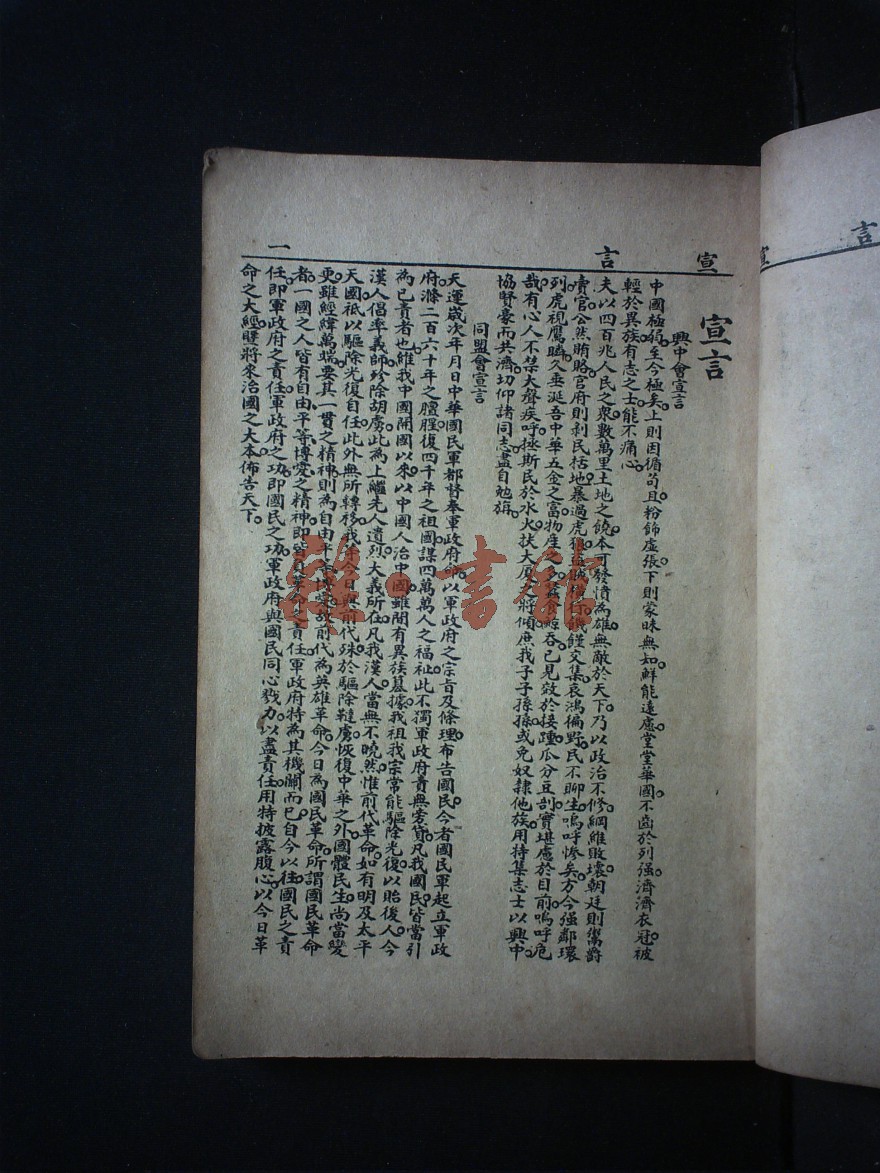 宣言
一
宣言
興中會宣言
中國極弱。至今極矣。上則因循苟且。粉飾虛張。下則蒙昧無知。鮮能遠慮。堂堂華國。不齒於列强。濟濟衣冠。被
輕於異族。有志之士。能不痛心。
夫以四百兆人民之衆。數萬里土地之饒。本可發憤為雄。無敵於天下。乃以政治不修。綱維敗壞。朝廷則鬻爵
賣官。公然賄賂。官府則剥民括地。暴過虎狼。盜賊橫行。饑饉交集。哀鴻徧野。民不聊生。嗚呼慘矣。方今强鄰環
列。虎視鷹瞵。久垂涎吾中華五金之富。物產之多。蠶食鯨吞。已見效於接踵。瓜分豆剖。實堪慮於目前。嗚呼危
哉。有心人不禁大聲疾呼。拯斯民於水火。扶大廈之將傾。庶我子子孫孫。或免奴隸他族。用特集志士以興中。
協賢豪而共濟。切仰諸同志。盡自勉旃。
同盟會宣言
天運歲次年月日。中華國民軍都督奉軍政府命。以軍政府之宗旨及條理。布告國民。今者國民軍起。立軍政
府。滌二百六十年之膻腥。復四千年之祖國。謀四萬萬人之福祉。此不獨軍政府責無旁貸。凡我國民。皆當引
為已責者也。維我中國開國以來。以中國人治中國。雖間有異族篡據。我祖我宗。常能驅除光復。以貽後人。今
漢人倡率義師。殄除胡虜。此為上繼先人遺烈。大義所在。凡我漢人。當無不曉然。惟前代革命。如有明及太平
天國。祇以驅除光復自任。此外無所轉移。我等今日與前代殊。於驅除韃虜。恢復中華之外。國體民生。尚當變
更。雖經緯萬端。要其一貫之精神。則為自由平等博愛。故前代為英雄革命。今日為國民革命。所謂國民革命
者。一國之人。皆有自由平等博愛之精神。即皆負革命之責任。軍政府特為其機關而已。自今以往。國民之責
任。即軍政府之責任。軍政府之功。即國民之功。軍政府與國民同心戮力。以盡責任。用特披露腹心。以今日革
命之大經。曁將來治國之大本。佈告天下。